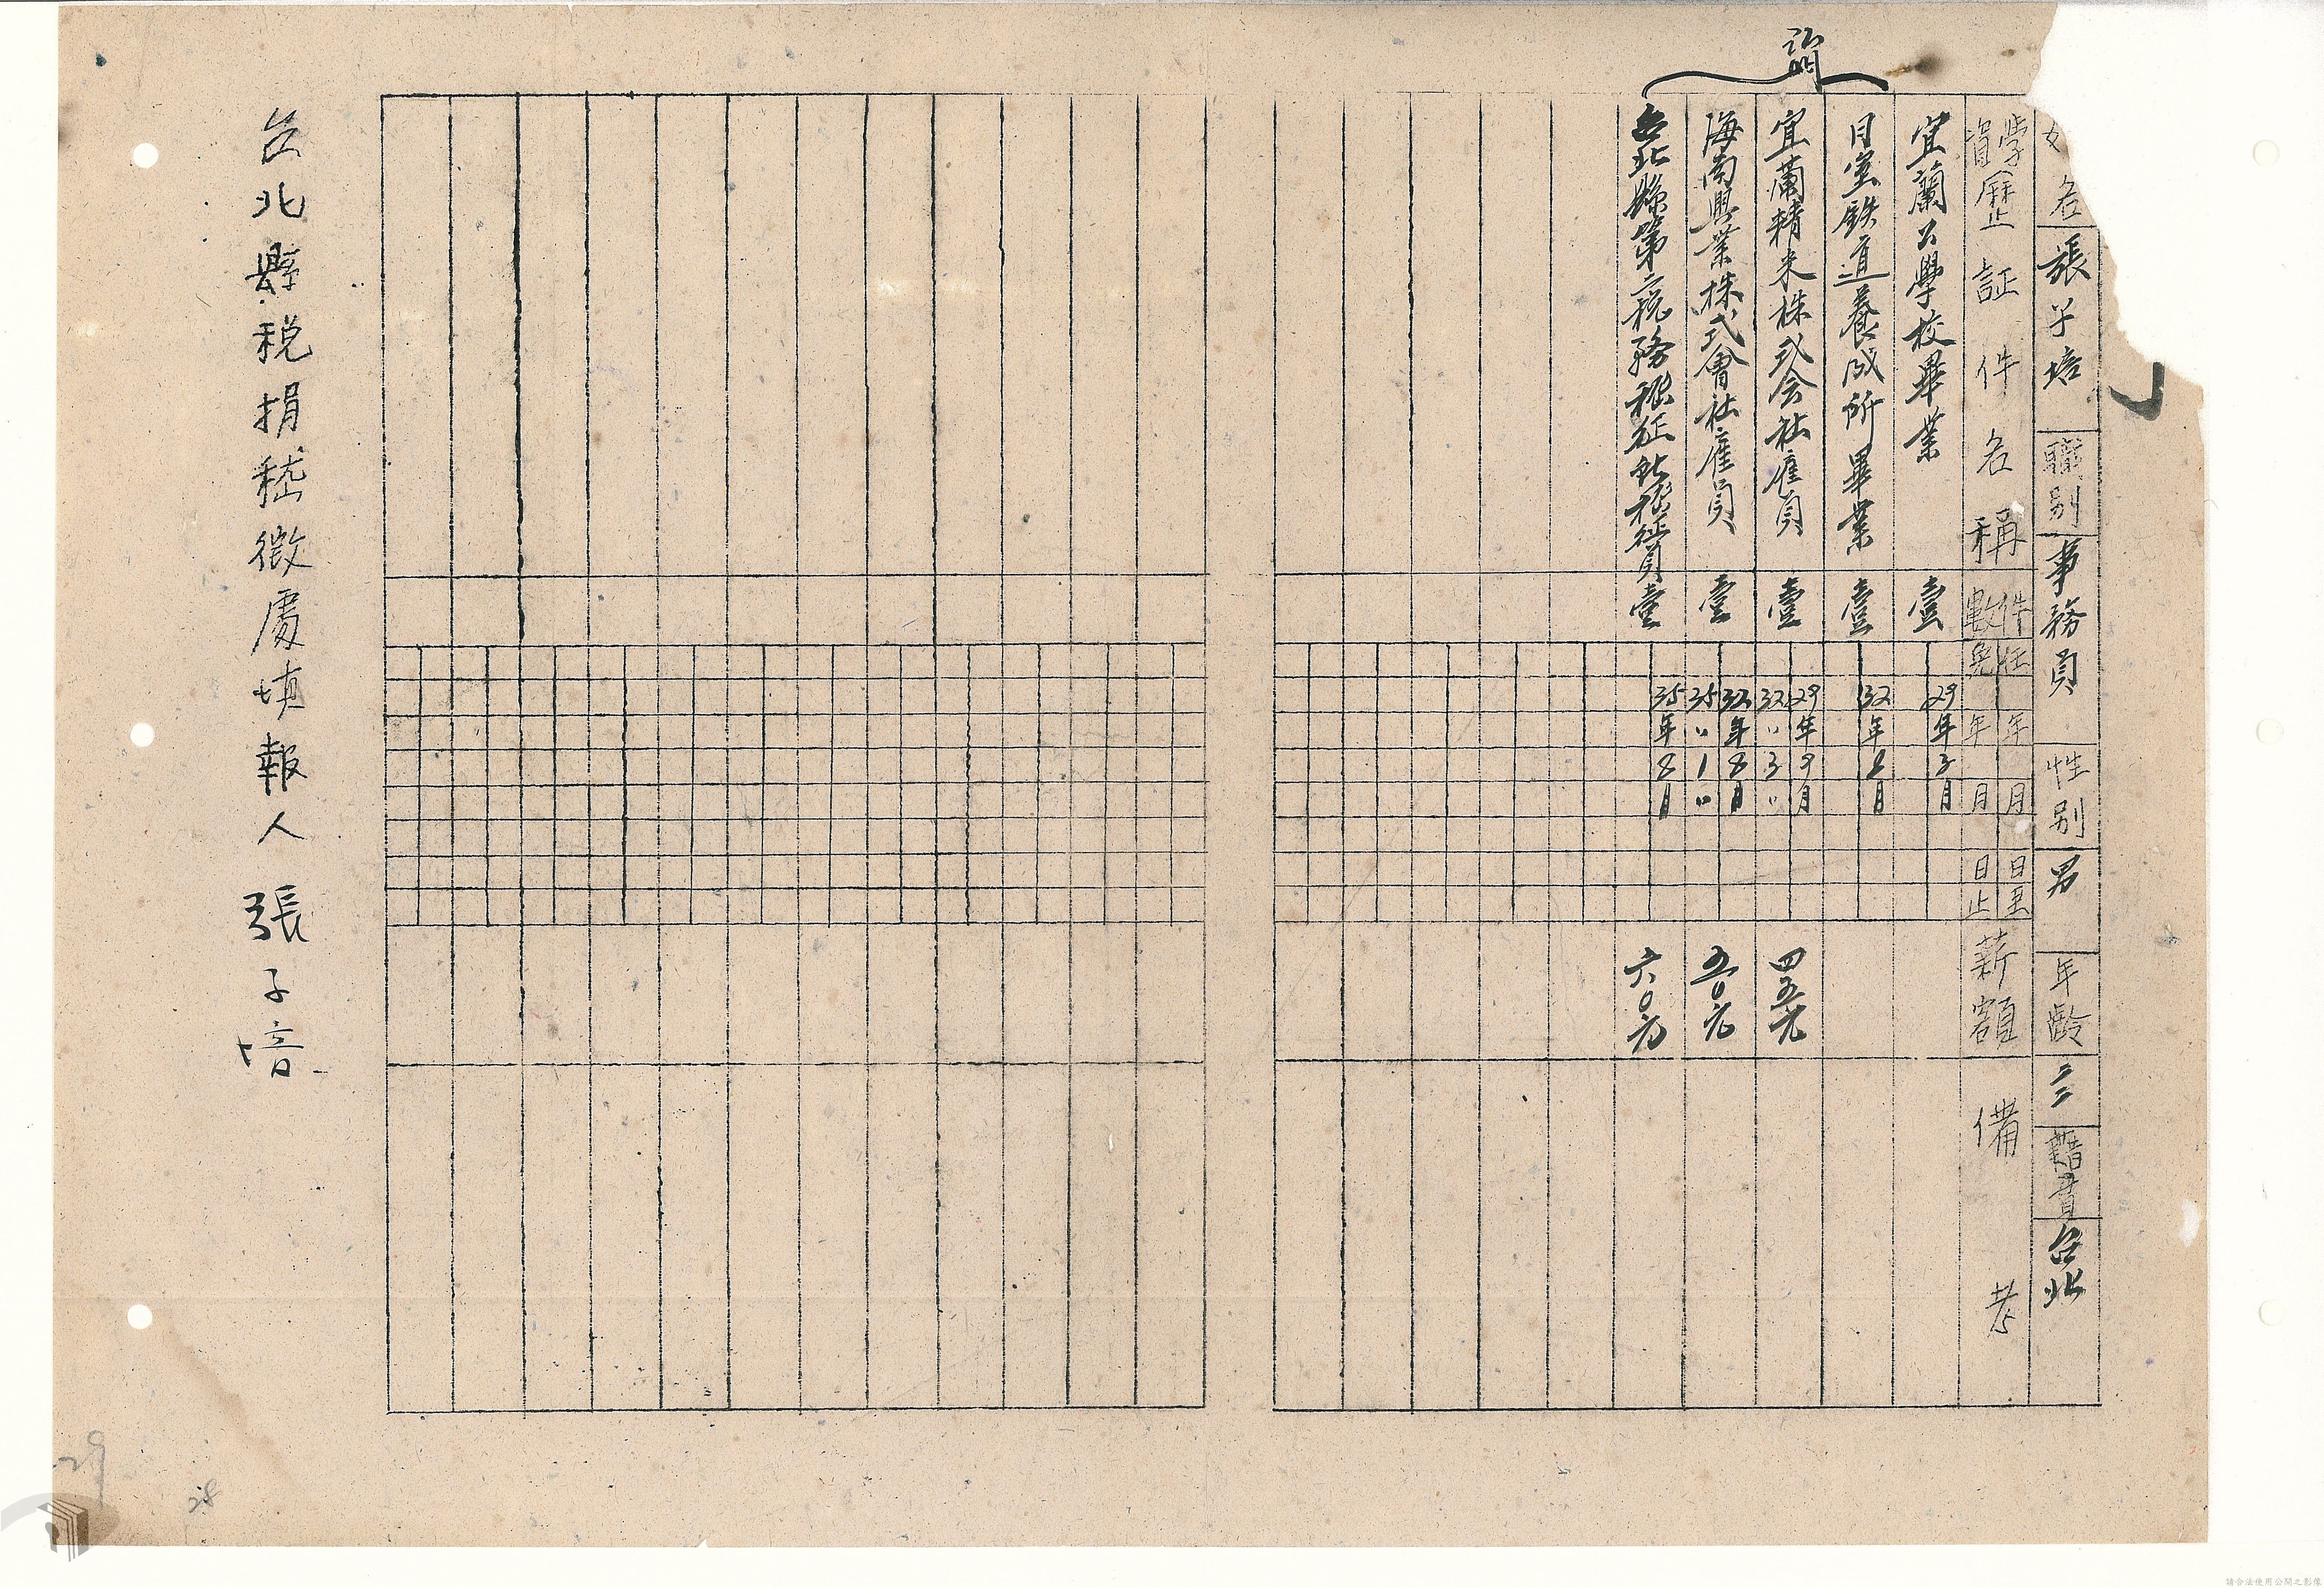 名 張子培 職別 事務員 性別 男 年齡 三二 籍貫 台北
學資歷証件名稱 件數 任免 年月日至 年月日止 薪額 備考
宜蘭公學校畢業 壹 29年3月
日室鉄道養成所畢業 壹 32年8月
宜蘭精米株式会社雇員 壹 29年9月 32〃3〃 四五元
海南興業株式會社雇員 壹 32年8月 35〃1〃 五0元
台北縣第二稅務稽征所稽征員 壹 35年8月 六0元
台北縣稅捐稽徵處填報人 張子培
29
28
請合法使用公開之影像